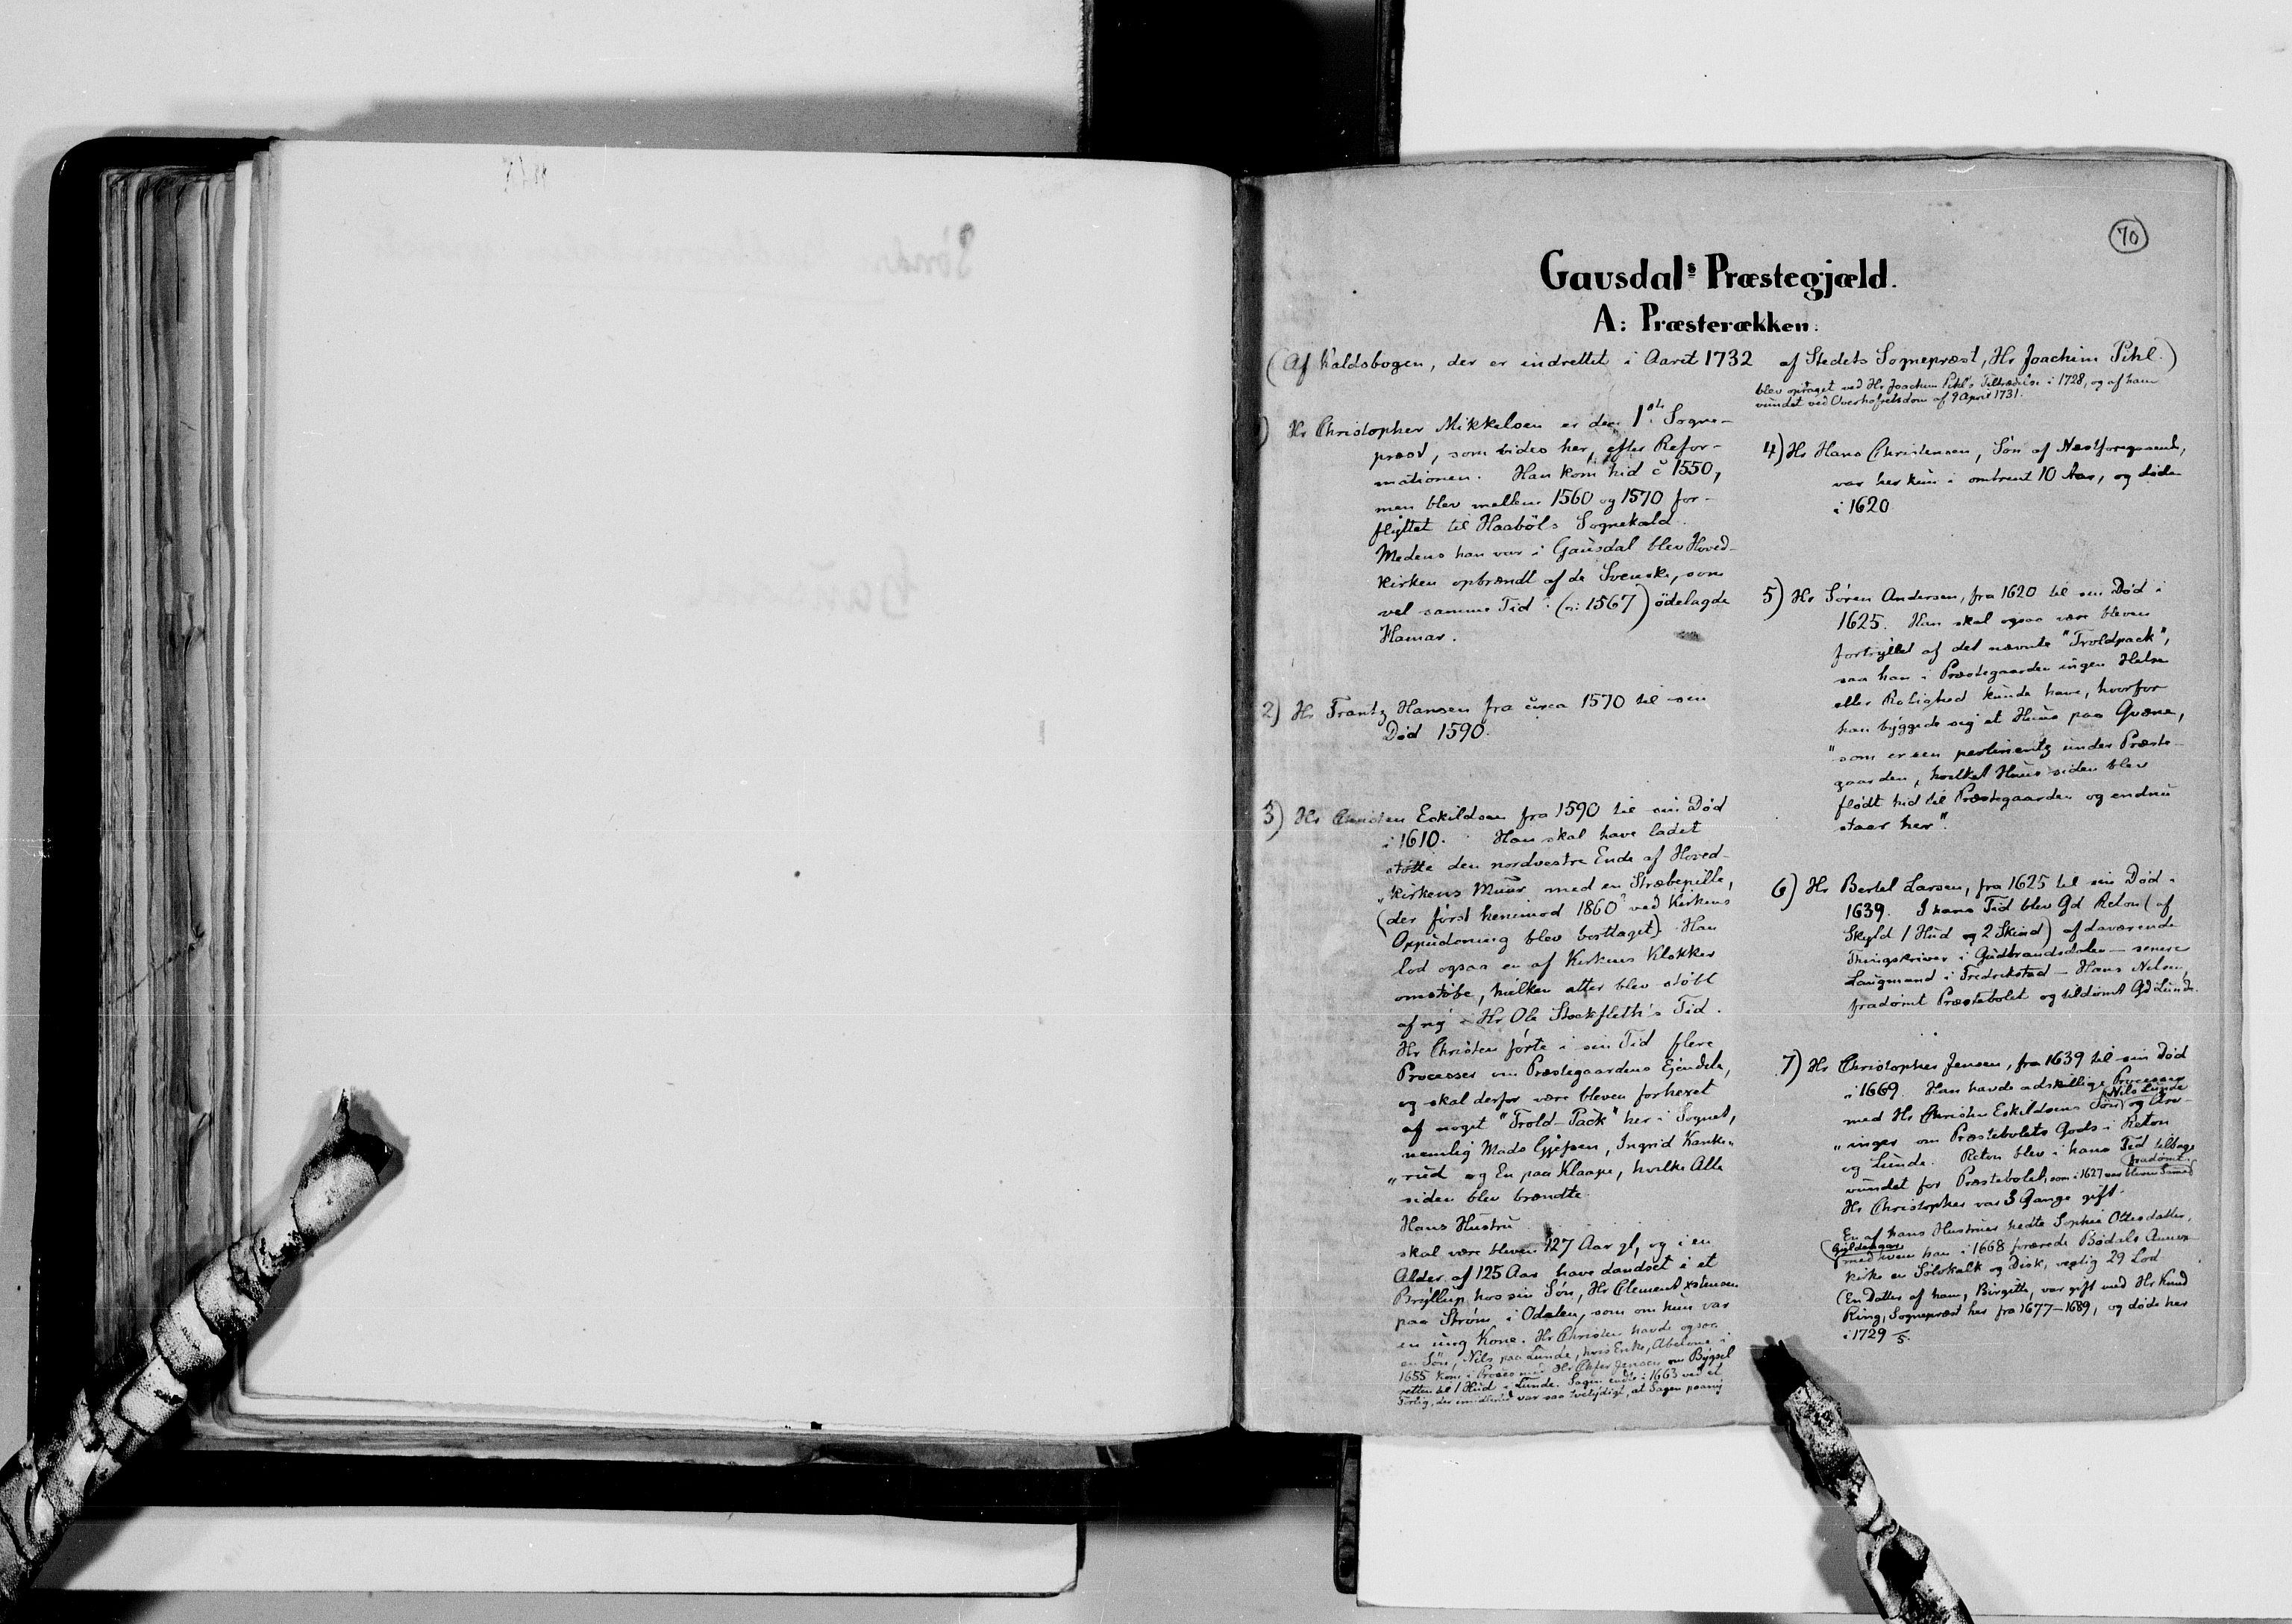 70
Gausdals Præstegjæld.
A: Præsterækken.
(Af Kaldsbogen, der er indrettet i Aaret 1732 af Stedets Sognepræst, Hr Joachim Pihl.)
Hr Christopher Mikkelsen er den 1ste Sogne-
præst, som vides her, efter Refor-
mationen. Han kom hid c 1550,
men blev mellem 1560 og 1570 for-
flyttet til Haaböls Sognekald.
Medens han var i Gausdal blev Hoved-
kirken opbrændt af de Svenske, som
ved samme Tid (ɔ: 1567) ödelagde
Hamar.
2) Hr Frantz Hansen fra circa 1570 til sin
Död 1590.
3) Hr Christen Eskildsen fra 1590 til sin Död
i 1610. Han skal have ladet
stötte den nordvestre Ende af Hoved-
„kirkens Muur med en Stræbepille,
(der först henimod 1860 ved Kirkens
Oppudsning blev borttaget). Han
lod ogsaa en af Kirkens Klokker
omstöbe, hvilken atter blev stöbt
af ny i Hr Ole Stockfleth's Tid.
Hr Christen förte i sin Tid flere
Processer om Præstegaardens Ejendele,
og skal derfor være bleven forhexet
af noget "Trold-Pack" her i Sognet,
nemlig Mads Gjefsen, Ingrid Kanke„
„rud og En paa Klaape, hvilke Alle
siden blev brændte.
Hans Hustru
skal være bleven 127 Aar gl, og i en
Alder af 125 Aar have dandset i et
Bryllup hos sin Sön, Hr Clement Xstensen
paa Ström i Odalen, som om hun var
en ung Kone. Hr Christen havde ogsaa
en Sön, Nils paa Lunde, hvis Enke, Abelone i
1655 kom i Proces med Hr Chfer Jensen om Bygsel
retten til 1 Hud i Lunde. Sagen endte i 1663 ved et
Forlig, der imidlertid var saa tvetydigt, at Sagen paany
blev optaget ved Hr Joachim Pihl's Tiltrædelse i 1728, og af ham
vundet ved Overhofretsdom af 9 April 1731.
4) Hr Hans Christensen, Sön af Næstforegaaende,
var her kun i omtrent 10 Aar, og döde
i 1620
5) Hr Sören Andersen, fra 1620 til sin Död i
1625. Han skal ogsaa være bleven
fortryllet af det nævnte "Troldpack",
saa han i Præstegaarden ingen Helse
eller Rolighed kunde have, hvorfor
han byggede sig et Huus paa Qværne,
"som er een pertinentz under Præste-
gaarden, hvilket Huus siden blev
flödt hid til Præstegaarden og endnu
staar her".
6) Hr Bertel Larsen, fra 1625 til sin Död i
1639. I hans Tid blev Gd Reton (af
Skyld 1 Hud og 2 Skind) af daværende
Thingskriver i Gudbrandsdalen – senere
Laugmand i Fredrikstad – Hans Nilsen,
fradömt Præstebolet og tildömt Gd Lunde.
7) Hr Christopher Jensen, fra 1639 til sin Död
i 1669. Han havde adskillige Processer
med Hr Christen Eskildsens Sön Nils Lunde og Arv-
„inger om Præstebolets Gods i Reton
og Lunde. Reton blev i hans Tid tilbage
vundet for Præstebolet, som i 1627 var bleven samme fradömt.
Hr Christopher var 3 Gange gift.
En af hans Hustruer hedte Sophie Ottesdatter,
Gyldenaar
med hvem han i 1668 forærede Bödals Annex
kirke en Sölvkalk og Disk, vegtig 29 Lod
(En Datter af ham, Birgitte, var gift med Hr Knud
Ring, Sognepræst her fra 1677–1689, og döde her
i 1729 /5.